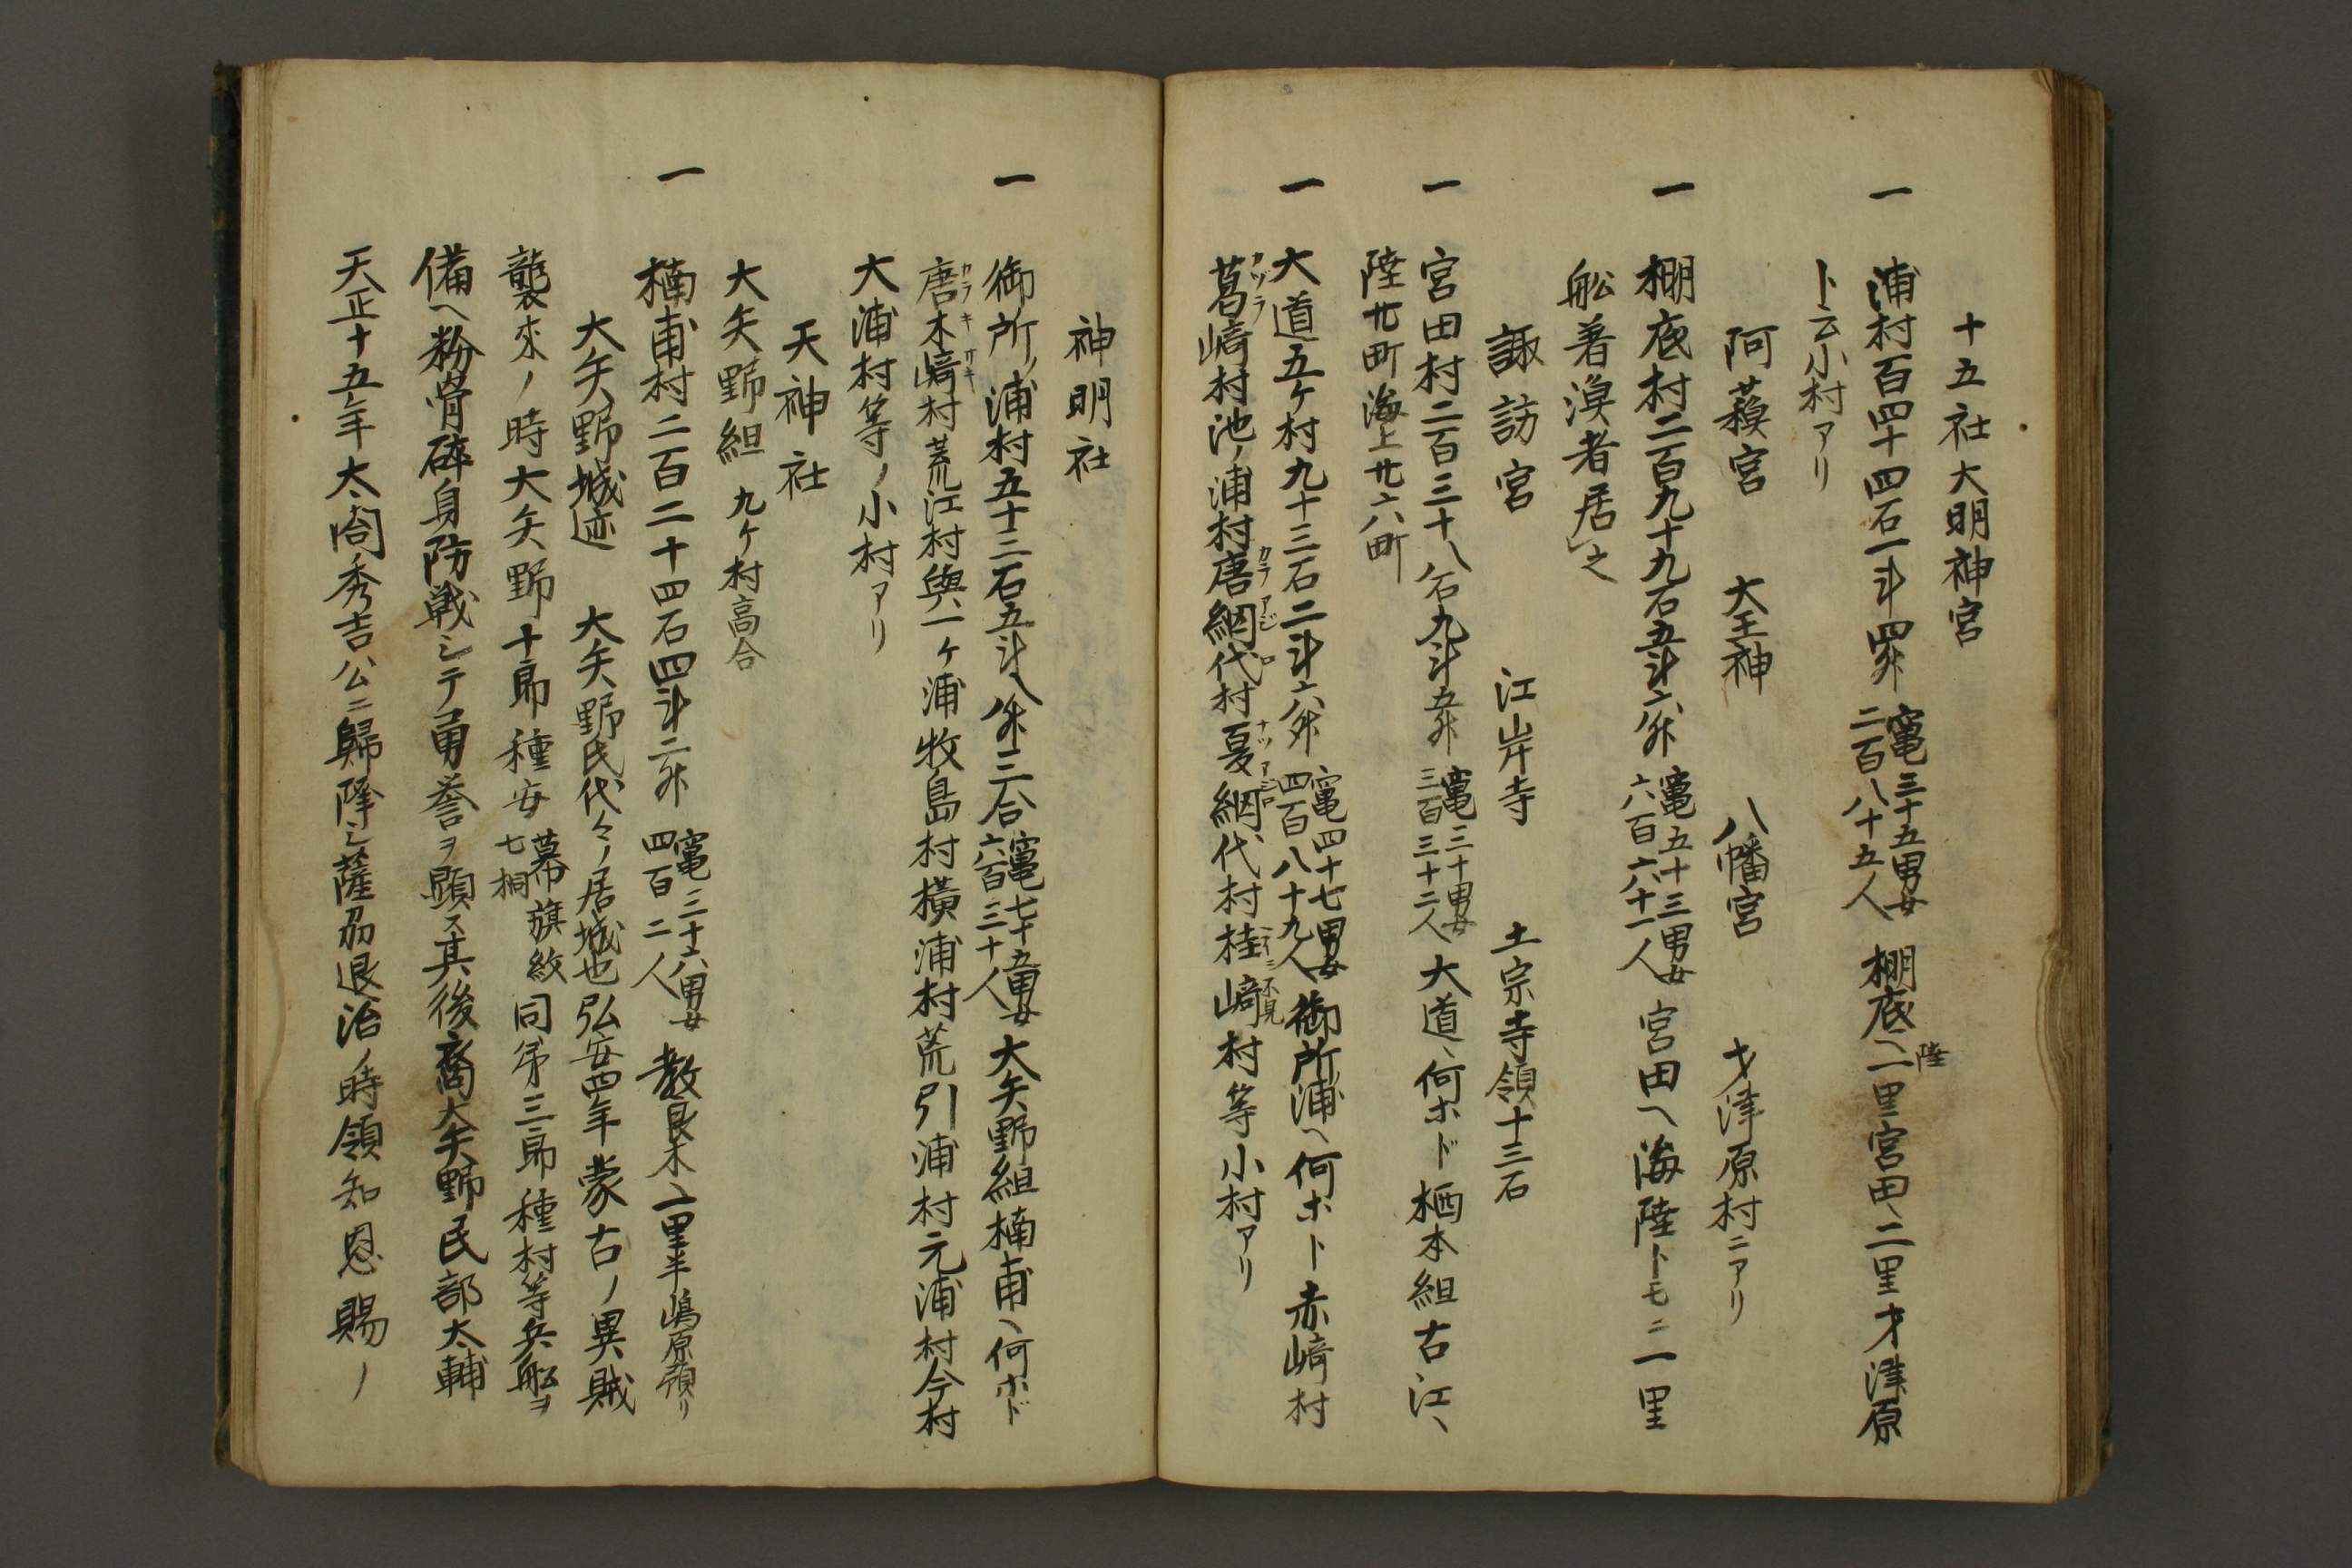 十五社大明神宮
一 浦村百四十四石一斗四升 竈三十五男女二百八十五人 棚底ヘ陸一里宮田ヘ二里才津原
ト云小村アリ
阿蘓宮 大王神 八幡宮 才津原村ニアリ
一 棚底村二百九十九石五斗六升 竈五十三男女六百六十一人 宮田ヘ海陸トモニ一里
舩着漁者居之
諏訪宮 江岸寺 土宗寺領十三石
一 宮田村二百三十八石九斗五升 竈三十男女三百三十二人 大道ヘ何ホド栖本組古江ヘ
陸廿町海上廿六町
一 大道五ケ村九十三石二斗六升 竈四十七男女四百八十九人 御所浦ヘ何ホト赤﨑村
葛﨑村池ノ浦村唐網代村夏網代村桂﨑村等小村アリ
カツラ カラアジロ ナツアジロ 不見
神明社
一 御所ノ浦村五十二石五斗八升三合 竈七十五男女六百三十人 大矢野組楠甫ヘ何ホド
唐木﨑村荒江村與一ケ浦牧島村横浦村荒引浦村元浦村今村
カラキサキ
大浦村等ノ小村アリ
天神社
大矢野組 九ケ村高合
一 楠甫村二百二十四石四斗二升 竈三十六男女四百二人 教良木ヘ一里半嶋原領リ
大矢野城迹 大矢野氏代々ノ居城也弘安四年蒙古ノ異賊
襲來ノ時大矢野十郎種安 幕旗紋七桐 同弟三郎種村等兵船ヲ
備ヘ粉骨碎身防戦シテ勇誉ヲ顕ス其後裔大矢野民部太輔
天正十五年太閤秀吉公ニ歸降シ薩刕退治ノ時領知恩賜ノ